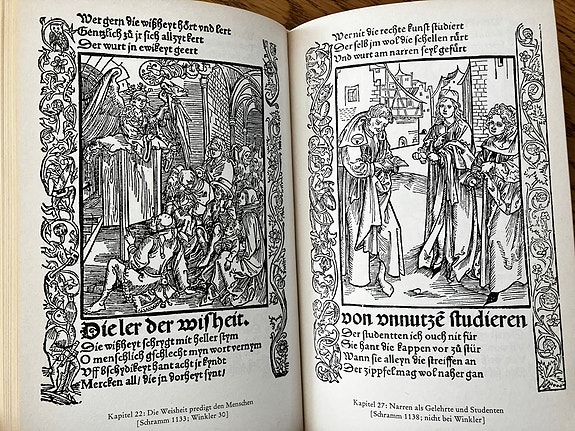 Wer gern die wißheyt hört vnd lert
Gentzlich zů jr sich allzyt kert
Der wurt jn ewikeyt geert
Die ler der wisheit.
Die wißheyt schrygt mit heller stym
O menschlich gschlecht myn wort vernym
Vff bschydikeyt hant acht jr kyndt
Mercken all / die jn dorheyt synt /
Kapitel 22: Die Weisheit predigt den Menschen
[Schramm 1133; Winkler 30]
Wer nit die rechte kunst studiert
Der selb jm wol die schellen rürt
Vnd wurt am narren seyl gefürt
von vnnutzē studieren
Der studentten ich ouch nit für
Sie hant die kappen vor zů stür
Wann sie alleyn die streiffen an
Der zipffel mag wol naher gan
Kapitel 27: Narren als Gelehrte und Studenten
[Schramm 1138; nicht bei Winkler]